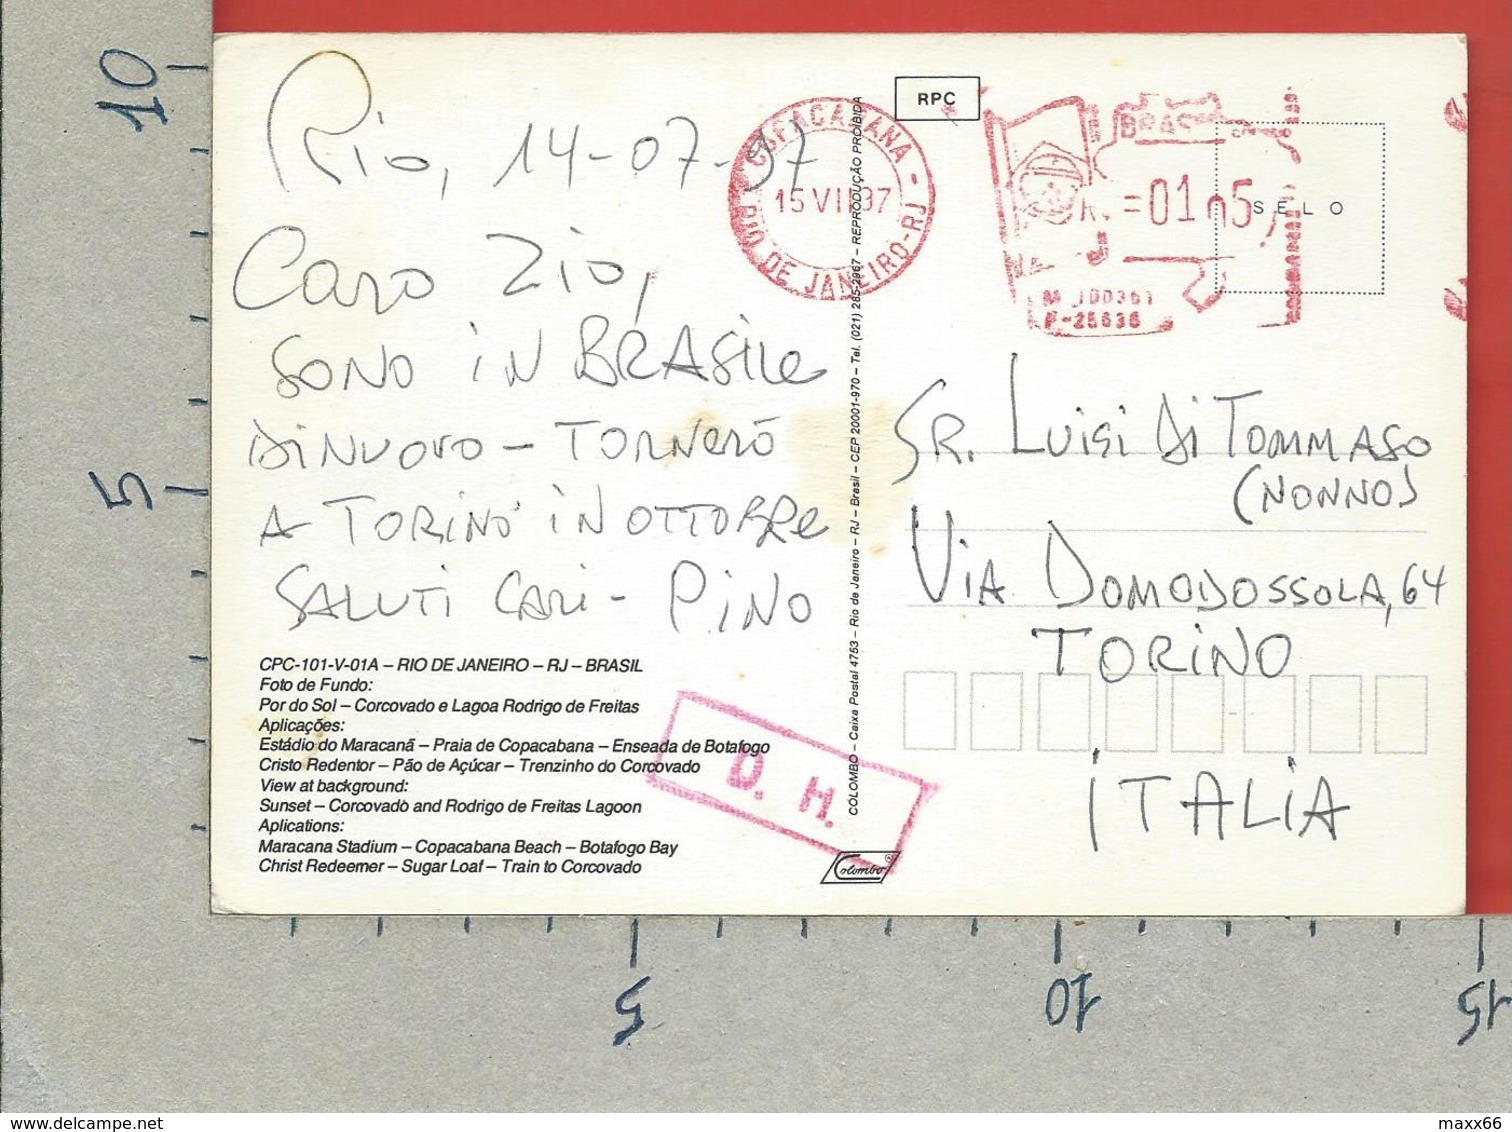 Rio, 14-07-97
Caro Zio,
SONO iN BRASiLe
Di NUOVO – TORNeRÒ
A TORiNO iN OTTOBRe
SALUTi CARi – PiNO
CPC-101-V-01A – RIO DE JANEIRO – RJ – BRASIL
Foto de Fundo:
Por do Sol – Corcovado e Lagoa Rodrigo de Freitas
Aplicações:
Estádio do Maracanã – Praia de Copacabana – Enseada de Botafogo
Cristo Redentor – Pão de Açúcar – Trenzinho do Corcovado
View at background:
Sunset – Corcovado and Rodrigo de Freitas Lagoon
Aplications:
Maracana Stadium – Copacabana Beach – Botafogo Bay
Christ Redeemer – Sugar Loaf – Train to Corcovado
D. H.
Colombo ®
COLOMBO – Caixa Postal 4753 – Rio de Janeiro – RJ – Brasil – CEP 20001-970 – Tel. (021) 285-2967 – REPRODUÇÃO PROIBIDA
RPC
COPACABANA -
15 VII 97
RIO DE JANEIRO-RJ
BRASIL
SELO
SR. LUiGi Di TOMMASO
(NONNO)
ViA DOMODOSSOLA, 64
TORiNO
iTALiA
10
5
5
10
15
maxx66 for Delcampe.net
maxx66